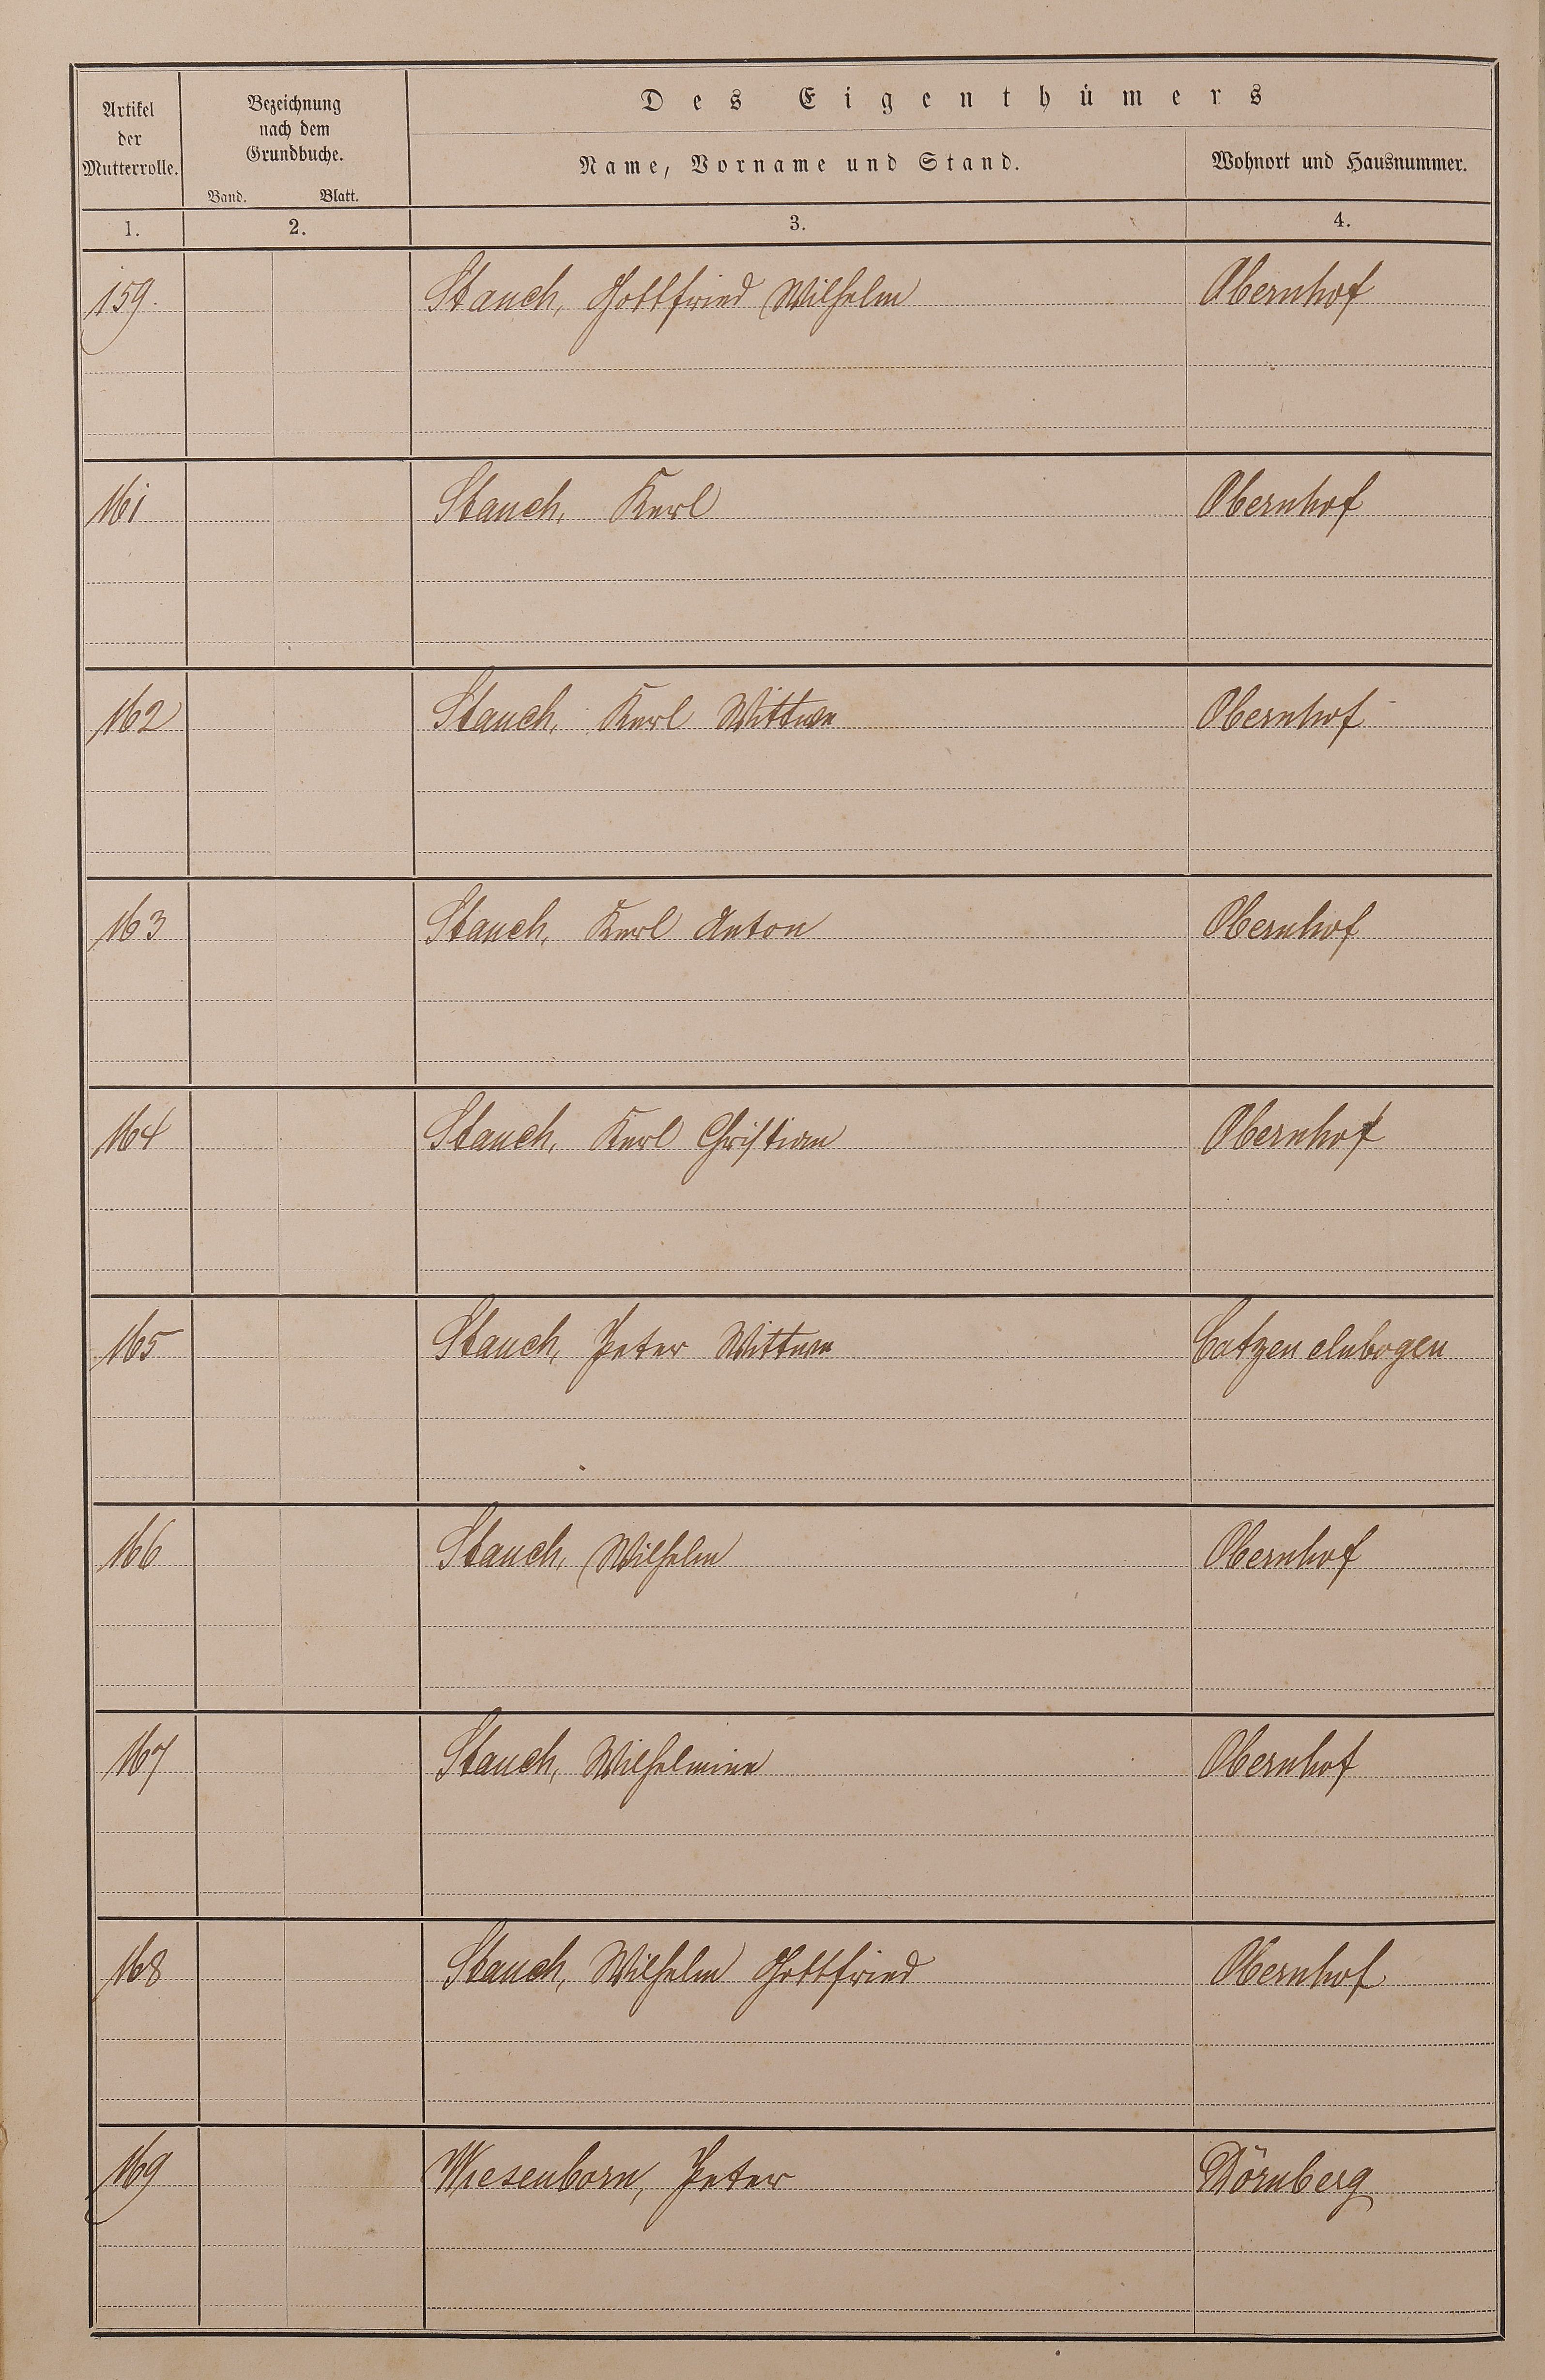 Des Eigenthümers
Artikel der Mutterrolle.
Bezeichnung nach dem Grundbuche.
Band. Blatt.
Name, Vorname und Stand.
Wohnort und Hausnummer.
1. 2. 3. 4.
159. Stauch, Gottfried Wilhelm Obernhof
161 Stauch, Karl Obernhof
162 Stauch, Karl Wittwe Obernhof
163 Stauch, Karl Anton Obernhof
164 Stauch, Karl Christian Obernhof
165 Stauch, Peter Wittwe Catzenelnbogen
166 Stauch, Wilhelm Obernhof
167 Stauch, Wilhelmine Obernhof
168 Stauch, Wilhelm Gottfried Obernhof
169 Wiesenborn, Peter Dörnberg